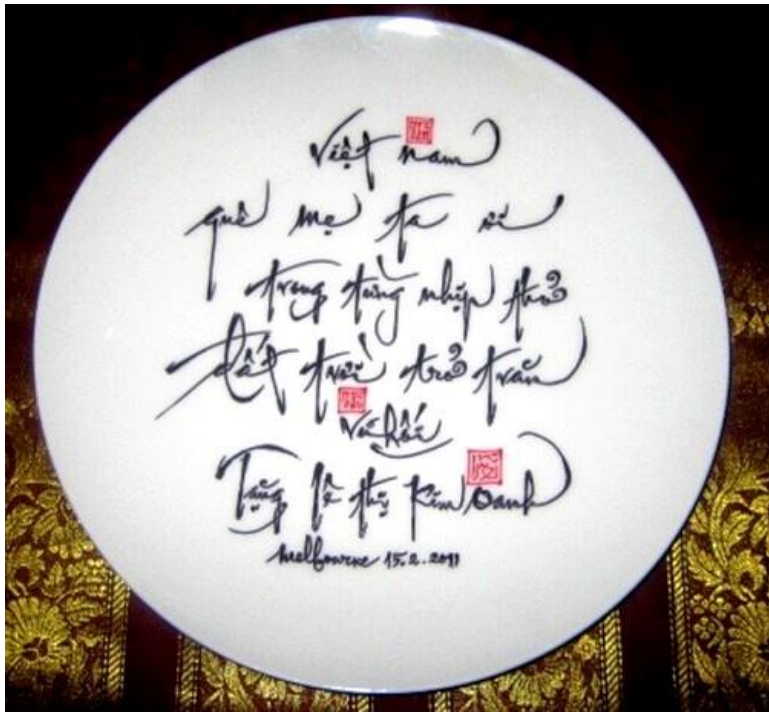 Việt nam
quê mẹ ta ơi
trong từng nhịp thở
đất trời trở trăn
Vũ hối
Tặng lê thị Kim Oanh
melbourne 15.2.2011